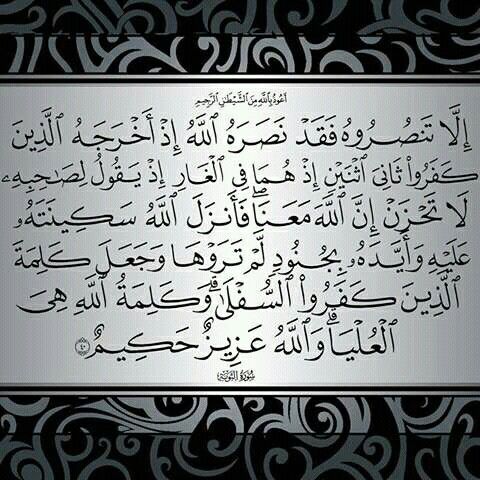 أَعُوذُ بِاللَّهِ مِنَ الشَّيْطَٰنِ الرَّجِيمِ
إِلَّا تَنصُرُوهُ فَقَدْ نَصَرَهُ ٱللَّهُ إِذْ أَخْرَجَهُ ٱلَّذِينَ
كَفَرُوا۟ ثَانِىَ ٱثْنَيْنِ إِذْ هُمَا فِى ٱلْغَارِ إِذْ يَقُولُ لِصَٰحِبِهِۦ
لَا تَحْزَنْ إِنَّ ٱللَّهَ مَعَنَا ۖ فَأَنزَلَ ٱللَّهُ سَكِينَتَهُۥ
عَلَيْهِ وَأَيَّدَهُۥ بِجُنُودٍ لَّمْ تَرَوْهَا وَجَعَلَ كَلِمَةَ
ٱلَّذِينَ كَفَرُوا۟ ٱلسُّفْلَىٰ ۗ وَكَلِمَةُ ٱللَّهِ هِىَ
ٱلْعُلْيَا ۗ وَٱللَّهُ عَزِيزٌ حَكِيمٌ ٤٠
سُورَةُ التَّوْبَةِ